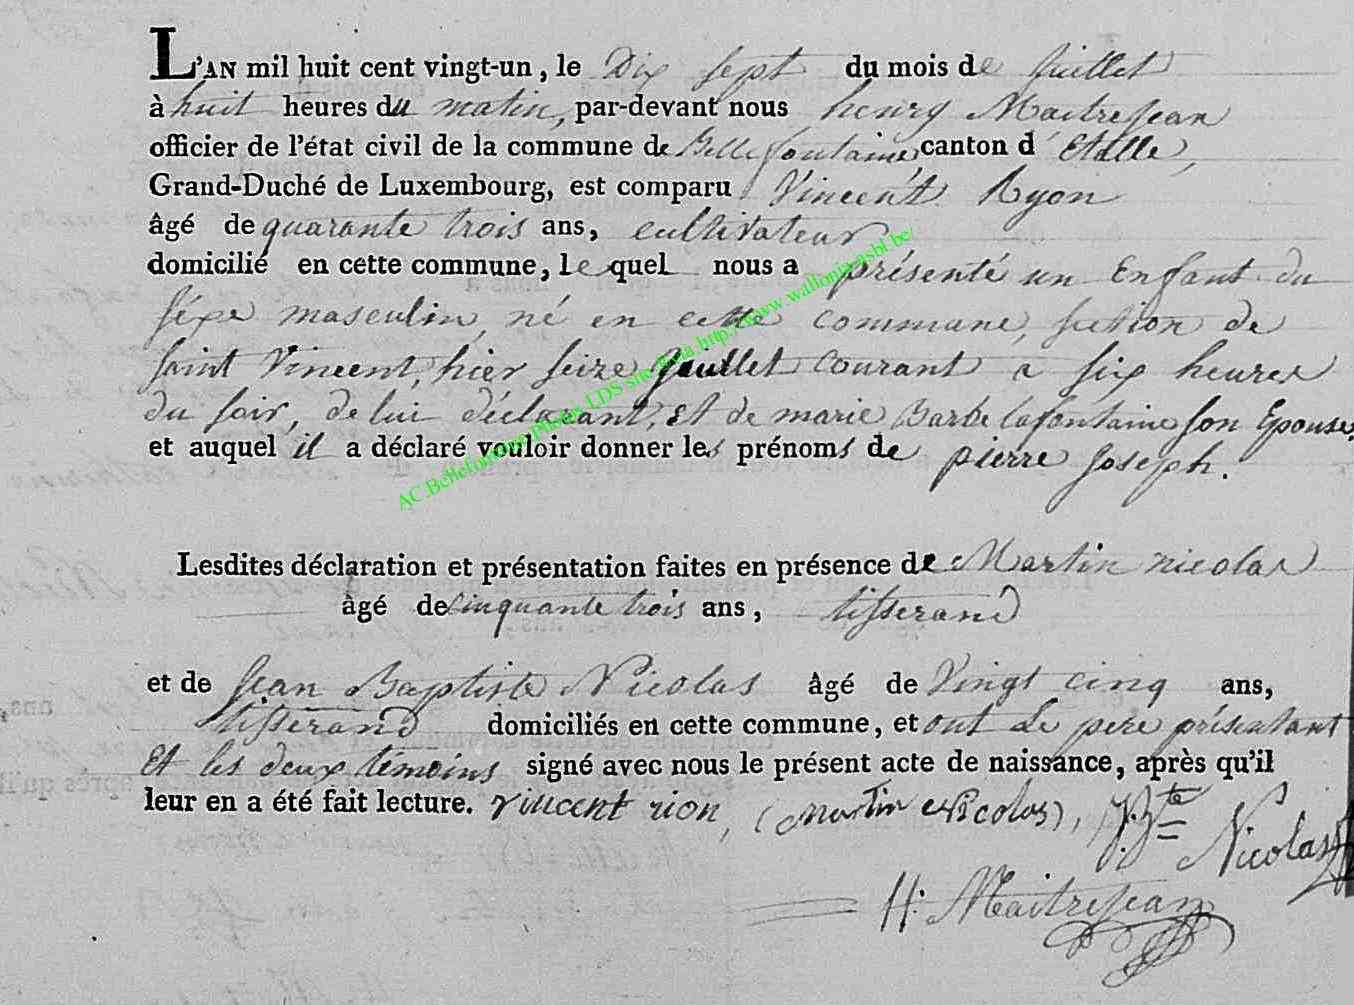 L'AN mil huit cent vingt-un, le Dix sept du mois de Juillet
à huit heures du matin, par-devant nous henry Maitrejean
officier de l'état civil de la commune de Bellefontaine, canton d'Etalle,
Grand-Duché de Luxembourg, est comparu Vincent Ryon
âgé de quarante trois ans, cultivateur
domicilié en cette commune, lequel nous a présenté un Enfant du
séxe masculin, né en cette commune, section de
saint Vincent, hier seize Juillet courant a six heures
du soir, de lui déclarant, Et de marie Barbe Lafontaine son Epouse,
et auquel il a déclaré vouloir donner les prénoms de pierre Joseph.
AC Bellefontaine Photos LDS sur Geneta http://www.wallonia asbl.be/
Lesdites déclaration et présentation faites en présence de Martin nicolas
âgé de cinquante trois ans, tisserand
et de Jean Baptiste Nicolas âgé de Vingt cinq ans,
tisserand domiciliés en cette commune, et ont Le pere présentant
Et les deux témoins signé avec nous le présent acte de naissance, après qu'il
leur en a été fait lecture. vincent rion, (martin Nicolas), J. Bte Nicolas
H: Maitrejean